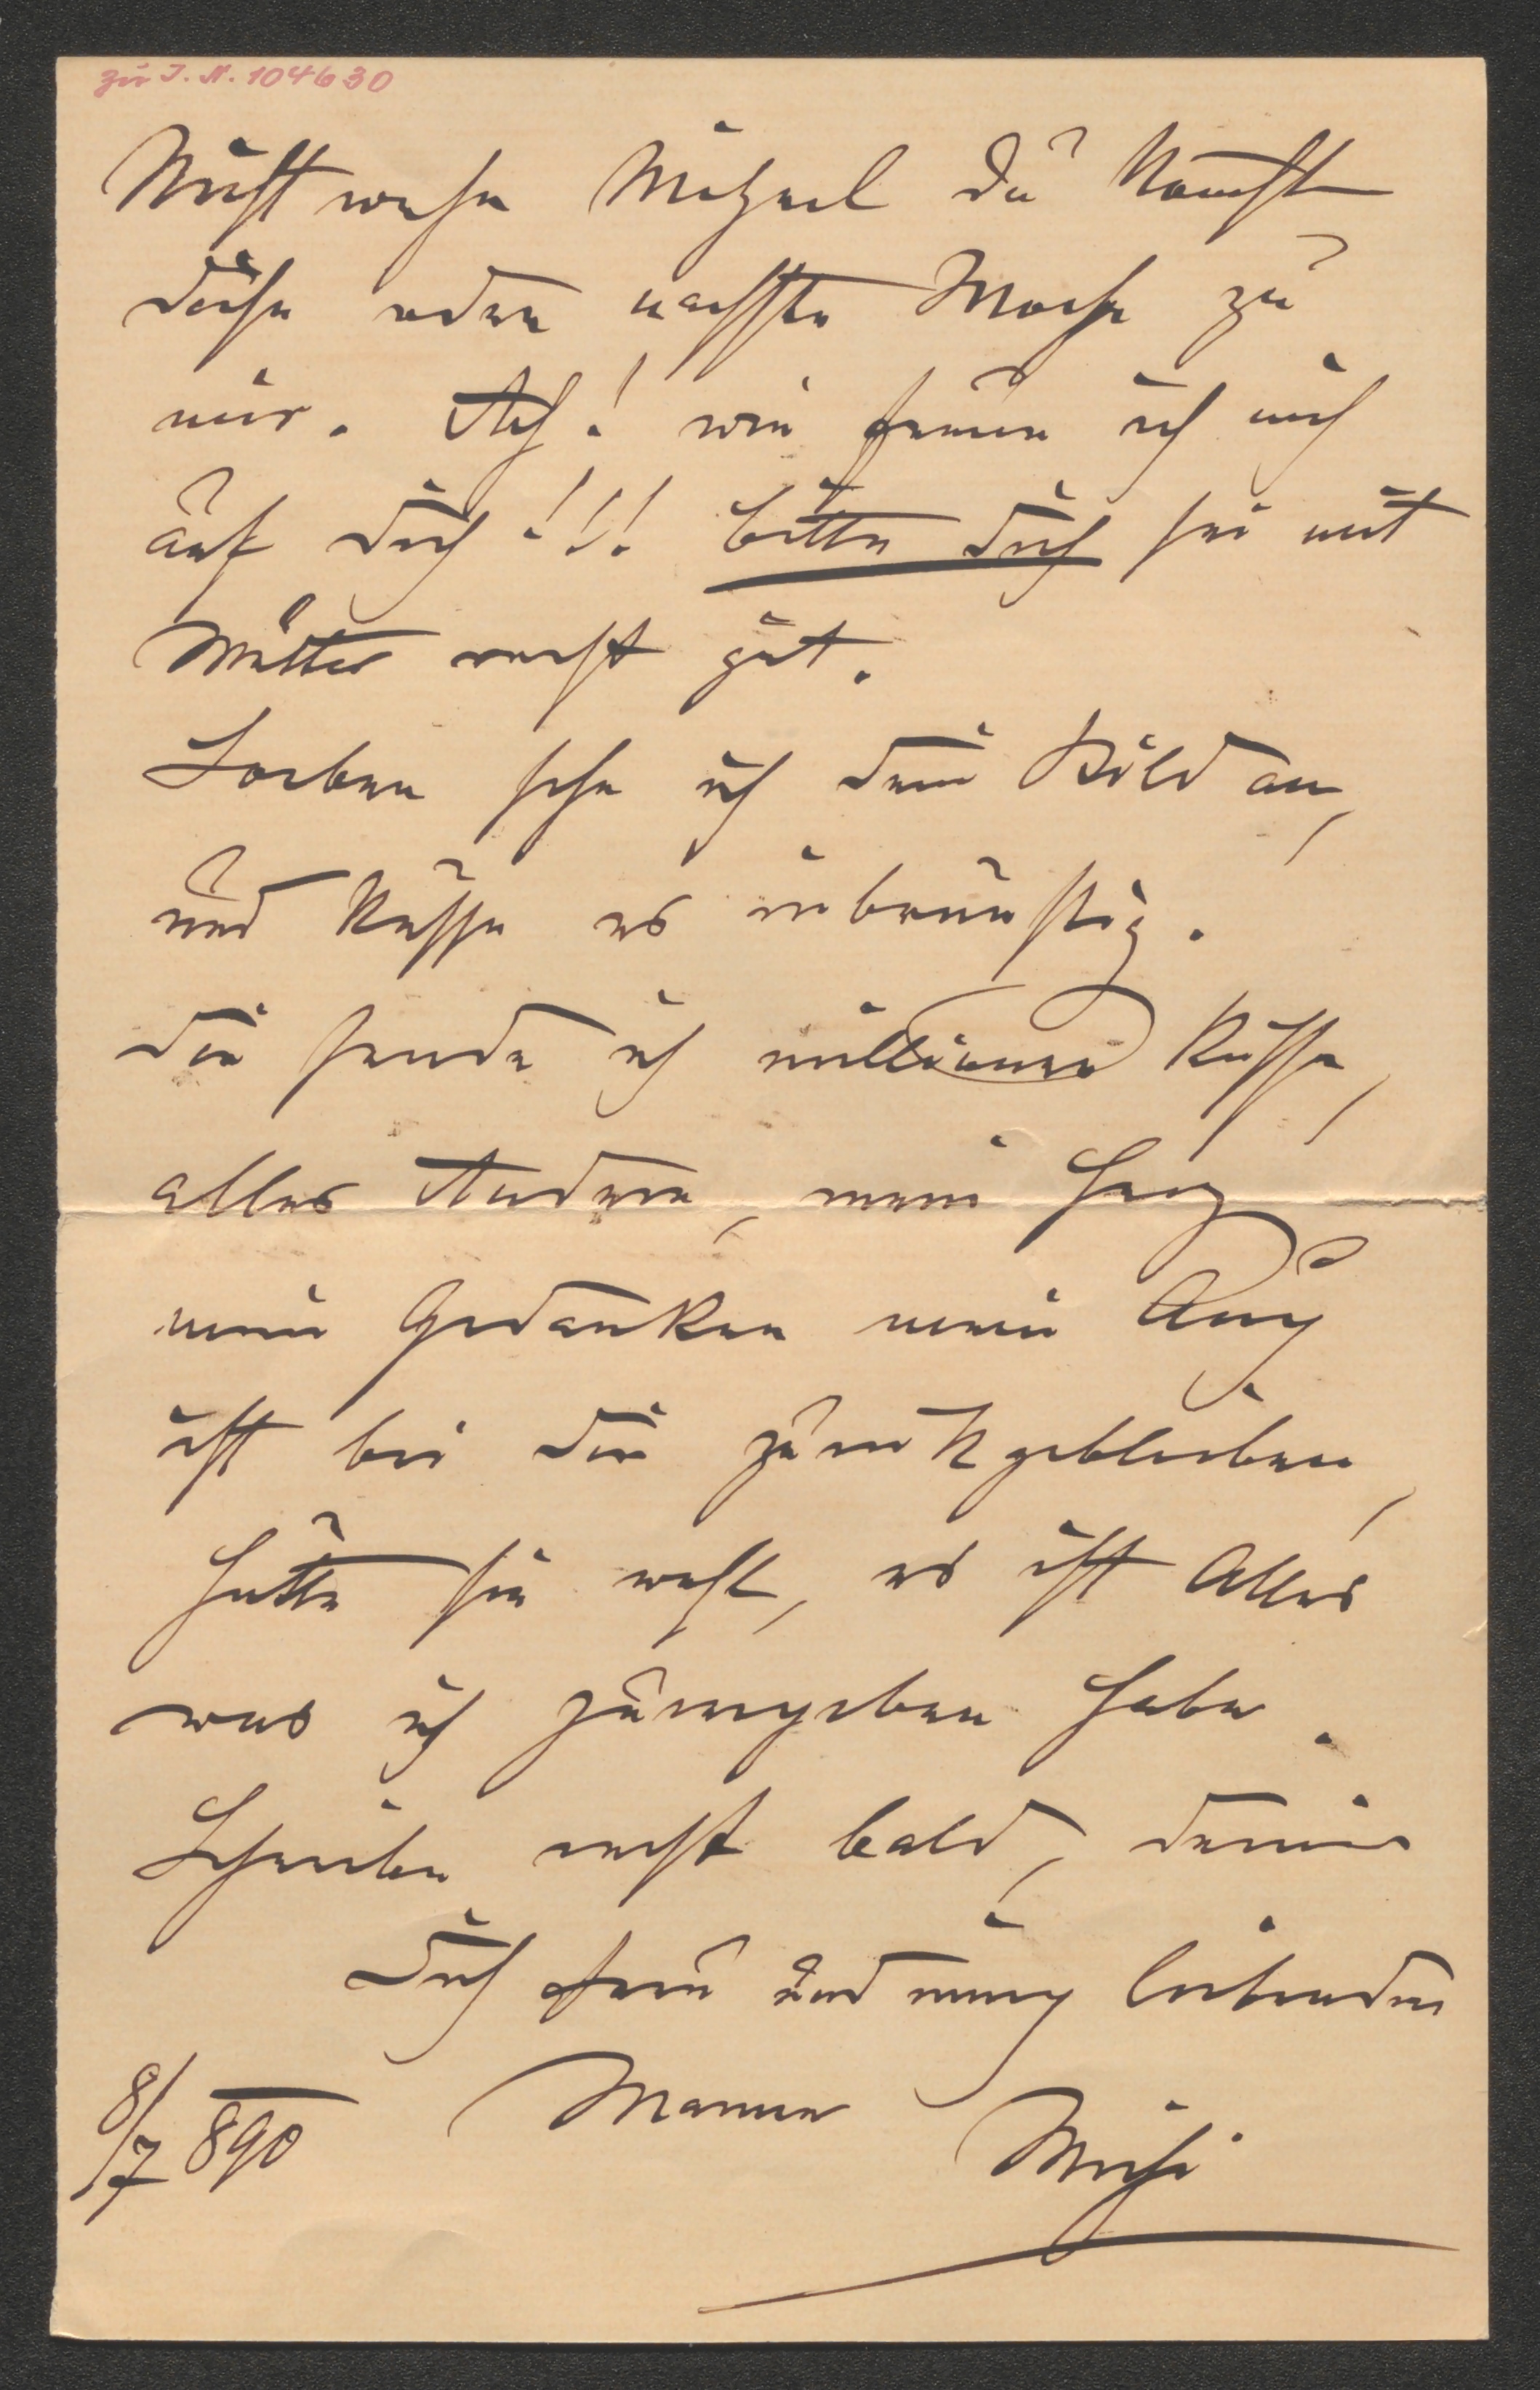 zu I. N. 104630
Nicht wahr Mitzerl du kommst
diese oder nächste Woche zu
mir. Ach! wie freue ich mich
auf dich!!! bitte dich sei mit
Mutter recht gut.
Soeben sehe ich dein Bild an,
und küsse es inbrünstig.
dir sende ich millionen Küsse,
alles Andere, mein Herz
mein Gedanken mein Aug
ist bei dir zurükgeblieben,
hütte sie wohl, es ist Alles
was ich zuvergeben habe.
Schreibe recht bald, deinen
dich treu und innig liebenden
8/7 890 Manne Michi